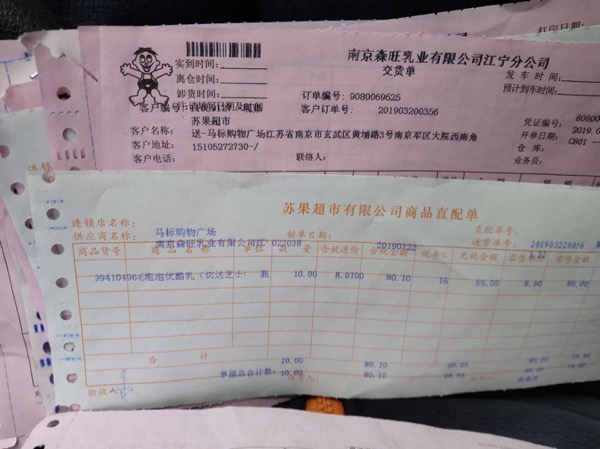 打印日期:
南京森旺乳业有限公司江宁分公司
交货单
实到时间:
离仓时间:
卸货时间:
发车时间:
预计到车时间:
订单编号: 9080069625
客户订单号: 201903200356
凭证编号: 80800
开单日期: 2019.0
仓 库: C801
业务员:
苏果超市
客户名称: 送-马标购物广场江苏省南京市玄武区黄埔路3号南京军区大院西南角
客户地址: 15105272730-/
客户电话:
联络人:
连锁
苏果超市有限公司商品直配单
连锁店名称: 马标购物广场
供应商名称: 南京森旺乳业有限公司江 022038
制单日期: 20190322
直配单号:
送货单号: 201903220856
商品货号 商品名称 单位 数量 含税进价 含税金额 税率% 无税金额 零售价 零售金额
39410496 泡泡优酪乳(切达芝士 瓶 10.00 8.0100 80.10 16 69.05 8.90 89.00
合 计 10.00 80.10
单据总合计数: 10.00 80.10
验收人: